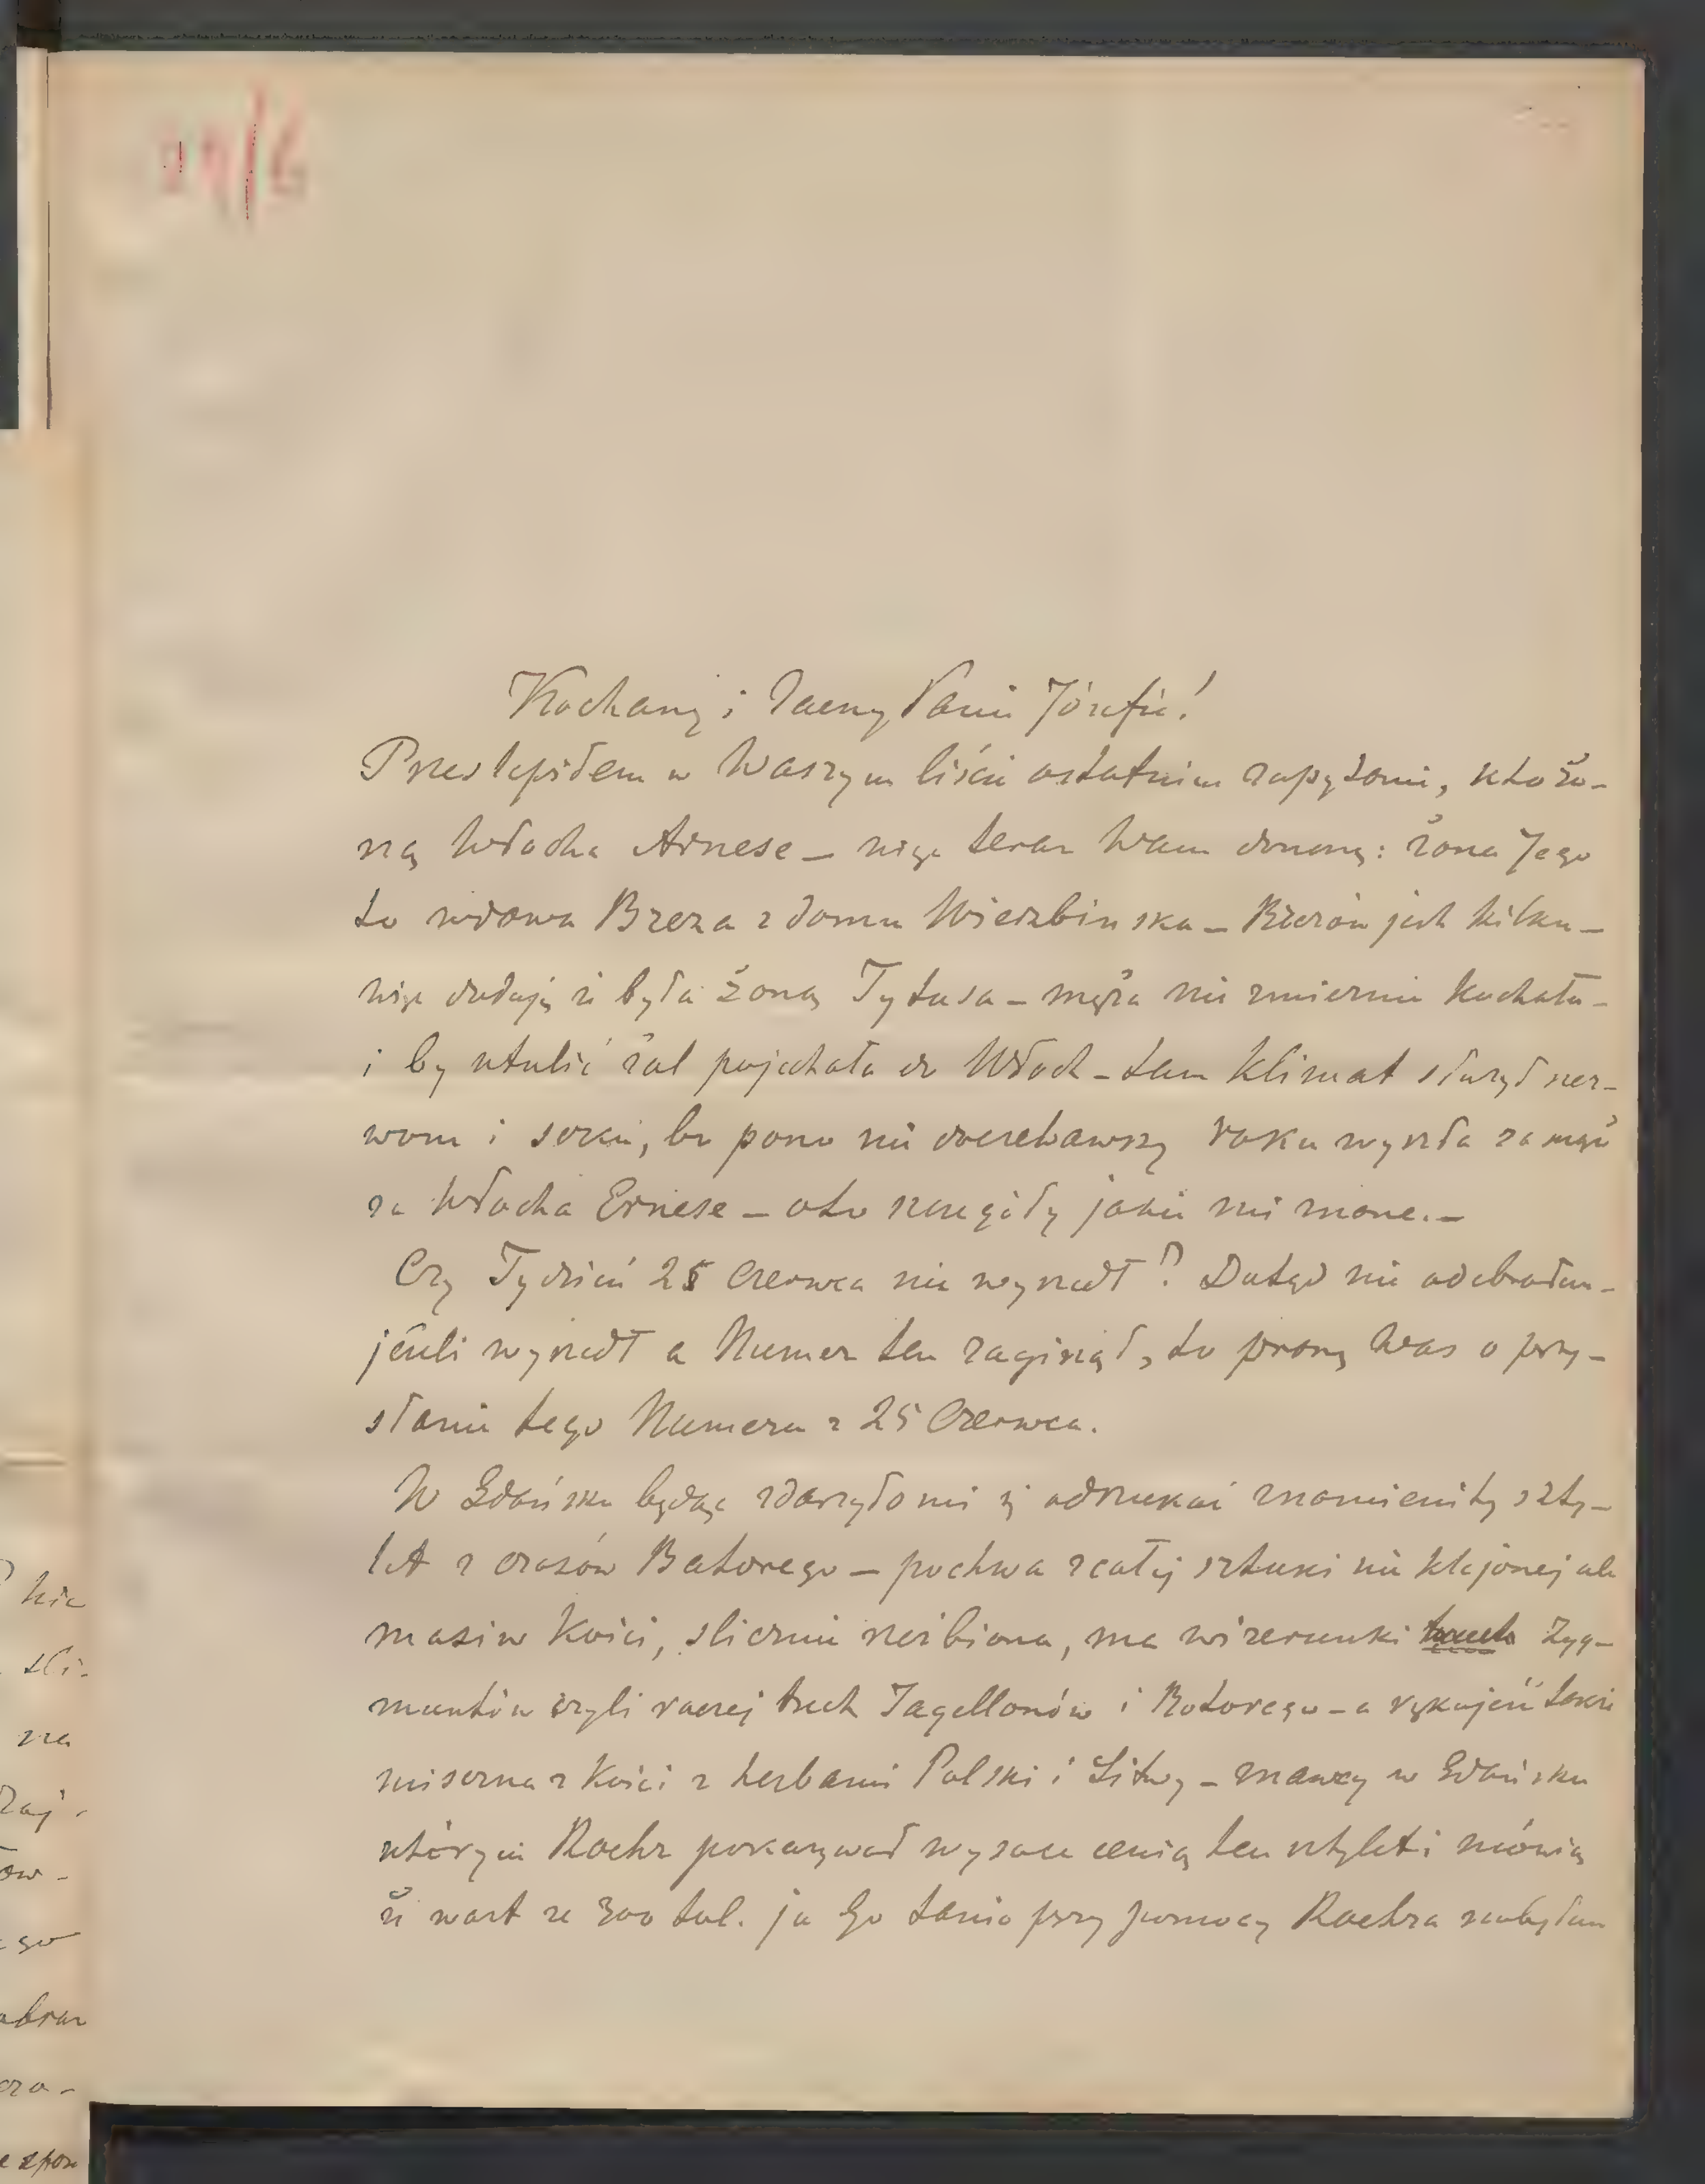 Kochany i Zacny Panie Józefie!
Przeslepiłem w Waszym liście ostatnim zapytanie, kto żo-
ną Włocha Arnese — więc teraz Wam donoszę: żona Jego
to wdowa Breza z domu Wierzbinska — Brezów jest kilku —
więc dodaję że była żoną Tytusa — męża nie zmiernie kochała —
i by utulić żal pojechała do Włoch — tam klimat służył ner-
wom i sercu, bo pono nie doczekawszy roku wyszła za mąż
za Włocha Ernese — oto szczegóły jakie mi znane. —
Czy Tydzień 25 Czerwca nie wyszedł? Dotąd nie odebrałem —
jeżeli wyszedł a Numer ten zaginął, to proszę Was o przy-
słanie tego Numeru z 25 Czerwca.
W Gdańsku będąc zdarzyło mi się odszukać znamienity szty-
let z czasów Batorego — pochwa z całej sztuki nie klejonej ale
masiw kości, slicznie rzeźbiona, ma wizerunki Zyg-
muntów czyli raczej trzech Jagellonów i Batorego — a rękojeść także
misterna z kości z herbami Polski i Litwy — znawcy w Gdańsku
którym Roehr pokazywał wysoce cenią ten sztylet i mówią
że wart ze 300 tal. ja Go tanio przy pomocy Roehra nabyłem